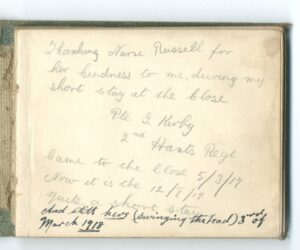 Thanking Nurse Russell for
her kindness to me, during my
short stay at the Close
Pte G Kirby
2nd Hants Regt
Came to the Close 5/3/17
Now it is the 12/8/17
quite a short stay
And still here (swinging the lead) 3rd of
March 1918